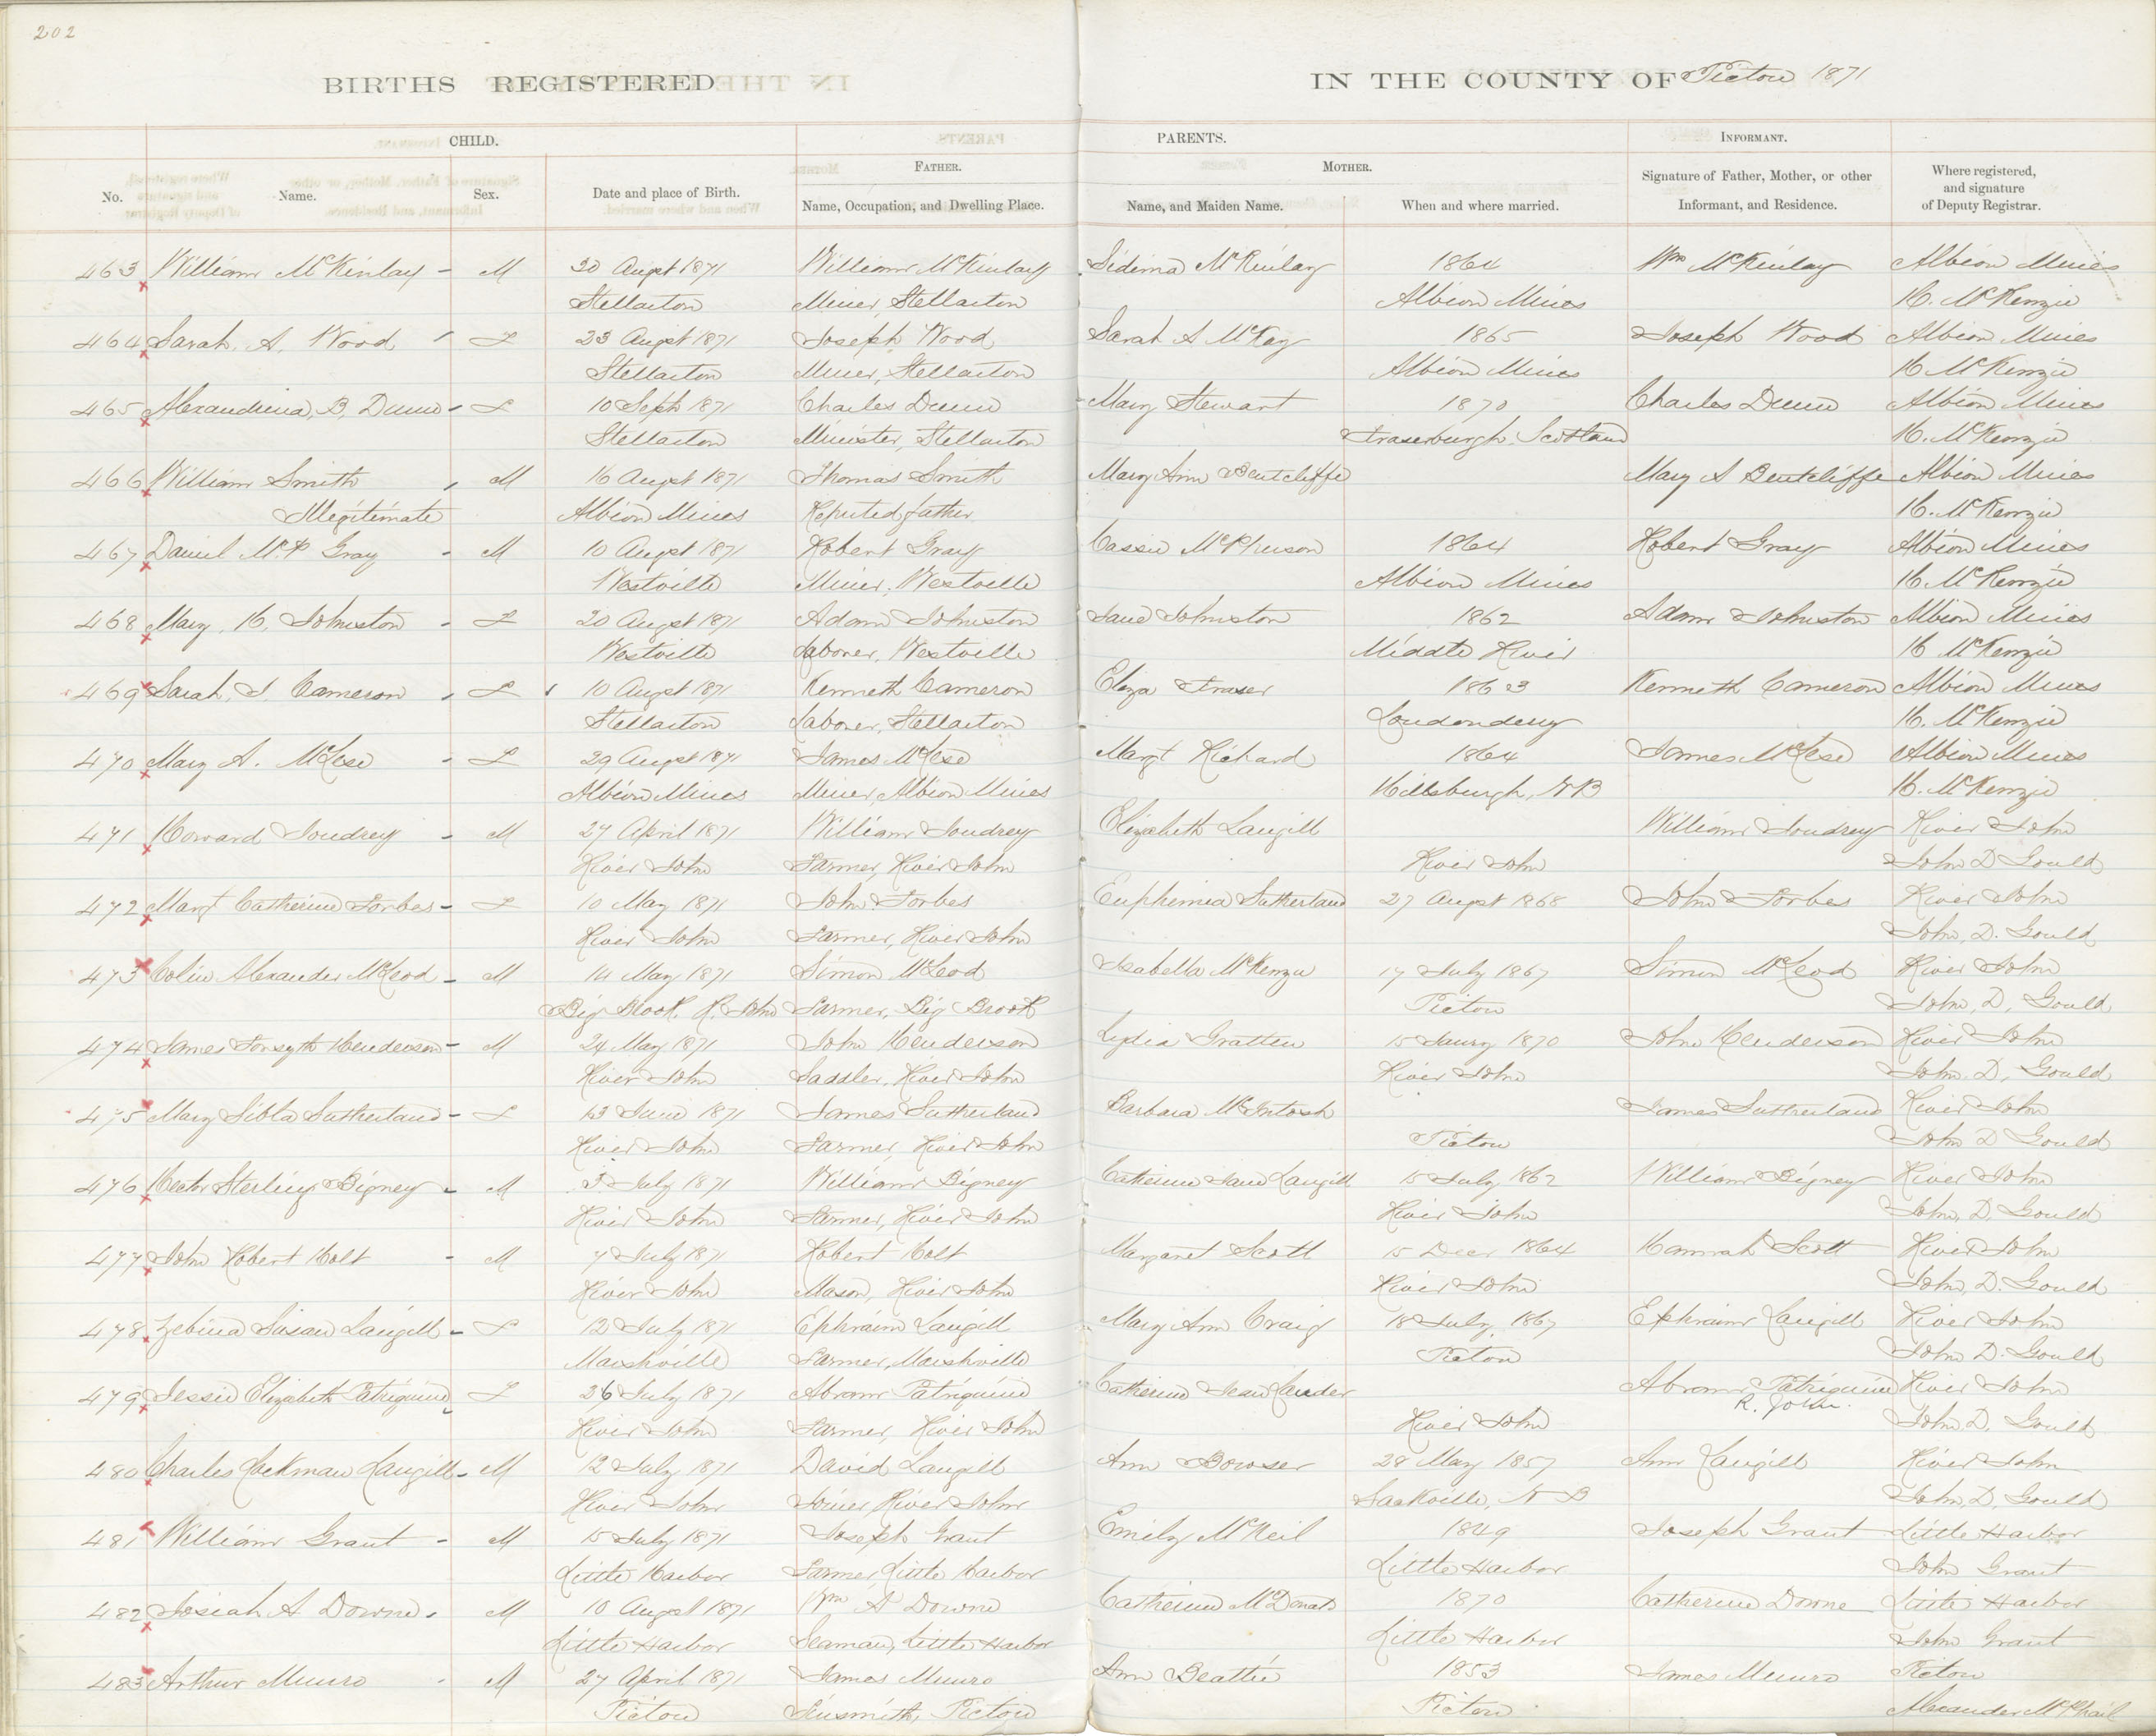 202
BIRTHS REGISTERED IN THE COUNTY OF Pictou 1871
CHILD. PARENTS. INFORMANT.
FATHER. MOTHER.
No. Name. Sex. Date and place of Birth. Name, Occupation, and Dwelling Place. Name, and Maiden Name. When and where married. Signature of Father, Mother, or other Informant, and Residence. Where registered, and signature of Deputy Registrar.
463 William McKinlay - M 30 Augst 1871 William McKinlay Sidima McKinlay 1864 Wm McKinlay Albion Mines
Stellarton Miner, Stellarton Albion Mines H. McKenzie
464 Sarah. A. Wood F 23 Augst 1871 Joseph Wood Sarah A McKay 1865 Joseph Wood Albion Mines
Stellarton Miner, Stellarton Albion Mines H McKenzie
465 Alexandrina, B, Dunn - F 10 Sept 1871 Charles Dunn Mary Stewart 1870 Charles Dunn Albion Mines
Stellarton Minister, Stellarton Fraserburgh. Scotland H. McKenzie
466 William Smith M 16 Augst 1871 Thomas Smith Mary Ann Bentcliffe Mary A Bentcliffe Albion Mines
Illegitimate Albion Mines Reputed father H. McKenzie
467 Daniel McP Gray - M 10 Augst 1871 Robert Gray Cassie McPherson 1864 Robert Gray Albion Mines
Westville Miner, Westville Albion Mines H. McKenzie
468 Mary, H, Johnston - F 20 Augst 1871 Adam Johnston Jane Johnston 1862 Adam Johnston Albion Mines
Westville Laborer, Westville Middle River H McKenzie
469 Sarah, J, Cameron F 10 Augst 1871 Kenneth Cameron Eliza Fraser 1863 Kenneth Cameron Albion Mines
Stellarton Laborer, Stellarton Londonderry H. McKenzie
470 Mary A. McLese - F 29 Augst 1871 James McLese Margt Richard 1864 James McLese Albion Mines
Albion Mines Miner, Albion Mines Hillsburgh, NB H. McKenzie
471 Howard Soudrey - M 27 April 1871 William Soudrey Elizabeth Langill William Soudrey River John
River John Farmer, River John River John John D Gould
472 Margt Catherine Forbes - F 10 May 1871 John Forbes Euphemia Sutherland 27 Augst 1868 John Forbes River John
River John Farmer, River John John, D. Gould
473 Colin Alexander McLeod - M 14 May 1871 Simon McLeod Isabella McKenzie 17 July 1867 Simon McLeod River John
Big Brook. R. John Farmer, Big Brook Pictou John, D, Gould
474 James Forsyth Henderson - M 24 May 1871 John Henderson Lydia Gratten 15 Jaury 1870 John Henderson River John
River John Saddler, River John River John John. D, Gould
475 Mary Sibla Sutherland - F 13 June 1871 James Sutherland Barbara McIntosh James Sutherland River John
River John Farmer, River John Pictou John D Gould
476 Hector Sterling Bigney - M 3 July 1871 William Bigney Catherine Jane Langill 15 July 1862 William Bigney River John
River John Farmer, River John River John John, D. Gould
477 John Robert Holt - M 7 July 1871 Robert Holt Margaret Scott 15 Decr 1864 Hannah Scott River John
River John Mason, River John River John John, D. Gould
478 Zebina Susan Langill - F 12 July 1871 Ephraim Langill Mary Ann Craig 18 July 1867 Ephraim Langill River John
Marshville Farmer, Marshville Pictou John D. Gould
479 Jessie Elizabeth Patriquine F 26 July 1871 Abram Patriquine Catherine Jean Lauder Abram Patriquine River John
R. John.
River John Farmer, River John River John John D. Gould
480 Charles Lockman Langill - M 12 July 1871 David Langill Ann Bowser 28 May 1857 Ann Langill River John
River John Joiner, River John Sackville, N B John, D. Gould
481 William Grant - M 15 July 1871 Joseph Grant Emily McNeil 1849 Joseph Grant Little Harbor
Little Harbor Farmer, Little Harbor Little Harbor John Grant
482 Josiah A Downe - M 10 August 1871 Wm A Downe Catherine McDonald 1870 Catherine Downe Little Harbor
Little Harbor Seaman, Little Harbor Little Harbor John Grant
483 Arthur Munro - M 27 April 1871 James Munro Ann Beattie 1853 James Munro Pictou
Pictou Tinsmith, Pictou Pictou Alexander McPhail